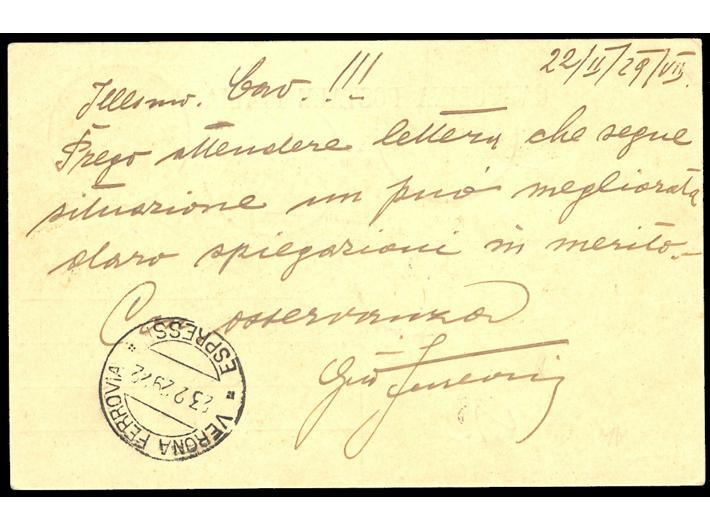 22/II/29/VII.
Illesmo. Cav. !!!
Prego attendere lettera che segue
situazione un puó megliorata
daro spiegazioni in merito.-
C. osservanza
Gio
VERONA FERROVIA
ESPRESSI
23.2.29.22